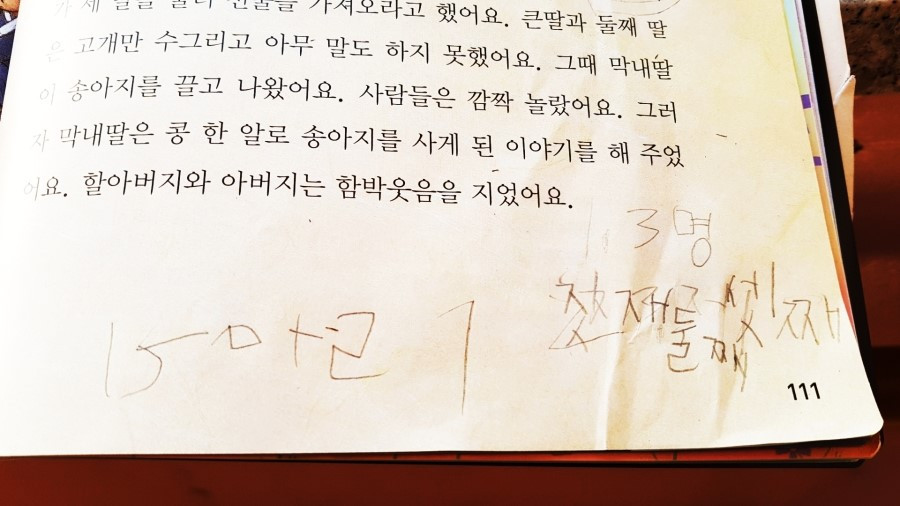 가 세 딸을 불러 선물을 가져오라고 했어요. 큰딸과 둘째 딸
은 고개만 수그리고 아무 말도 하지 못했어요. 그때 막내딸
이 송아지를 끌고 나왔어요. 사람들은 깜짝 놀랐어요. 그러
자 막내딸은 콩 한 알로 송아지를 사게 된 이야기를 해 주었
어요. 할아버지와 아버지는 함박웃음을 지었어요.
1. 3명
첫째둘째셋째
111